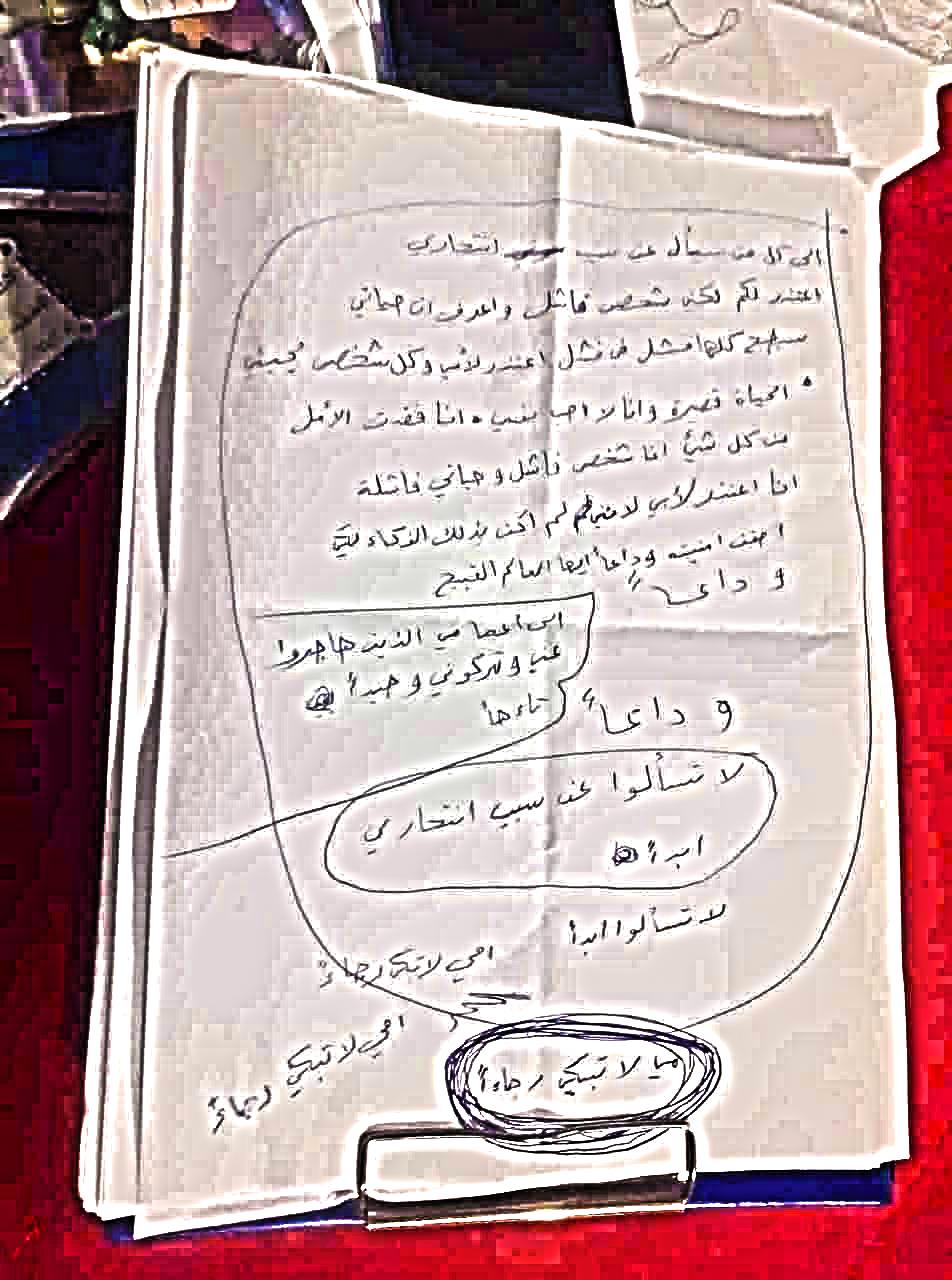 الى كل من سيسأل عن سبب انتحاري
اعتذر لكم لكني شخص فاشل واعرف ان حياتي
ستصبح كلها فشل في فشل اعتذر لأبي وكل شخص يحبني
الحياة قصيرة وانا لا احب نفسي • انا فقدت الأمل
من كل شيئ انا شخص فاشل و حياتي فاشلة
انا اعتذر لأبي لأنني لم اكن بذلك الذكاء لكي
احقق امنيته وداعاً ايها العالم القبيح
و داعاً
الى اعمامي الذين هاجروا
عني و تركوني و حيداً
و داعاً
لا تسألوا عن سبب انتحاري
ابداً
لا تسألوا ابداً
امي لا تبكي رجاءً
امي لا تبكي رجاءً
لا تبكي رجاءاً